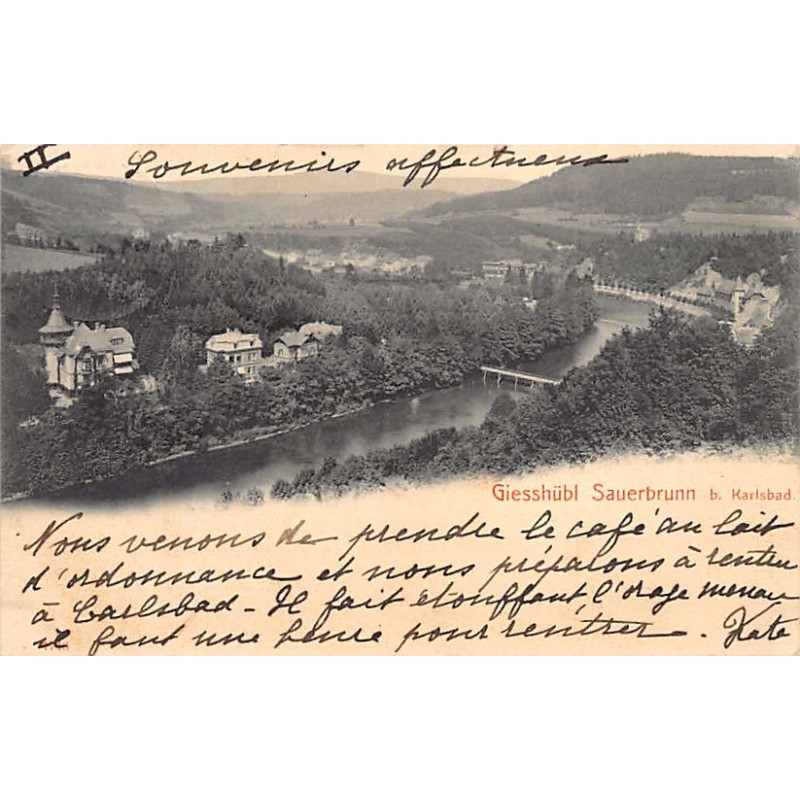 II Souvenirs affectueux
Giesshübl Sauerbrunn b. Karlsbad.
Nous venons de prendre le café au lait
d'ordonnance et nous préparons à rentrer
à Carlsbad - Il fait étouffant l'orage menace
il faut une heure pour rentrer. Kate